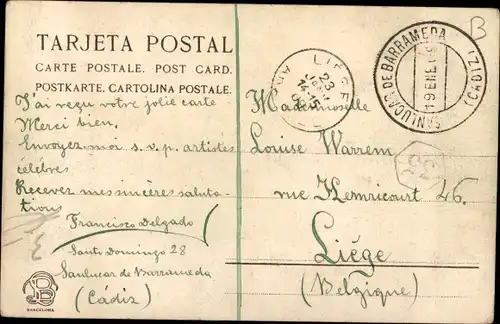 TARJETA POSTAL
CARTE POSTALE. POST CARD.
POSTKARTE. CARTOLINA POSTALE.
J'ai reçu votre jolie carte
Merci bien.
Envoyez-moi s. v. p. artistes
célébres
Recevez mes sincères saluta-
tions
Francisco Delgado
Santo Domingo 28
Sanlucar de Barrameda
(Cádiz)
BARCELONA
LIÉGE
23
SANLUCAR DE BARRAMEDA
19 ENE
(CADIZ)
B
Mademoiselle
Louise Warrem
rue Hemricourt 46.
Liége
(Belgique)